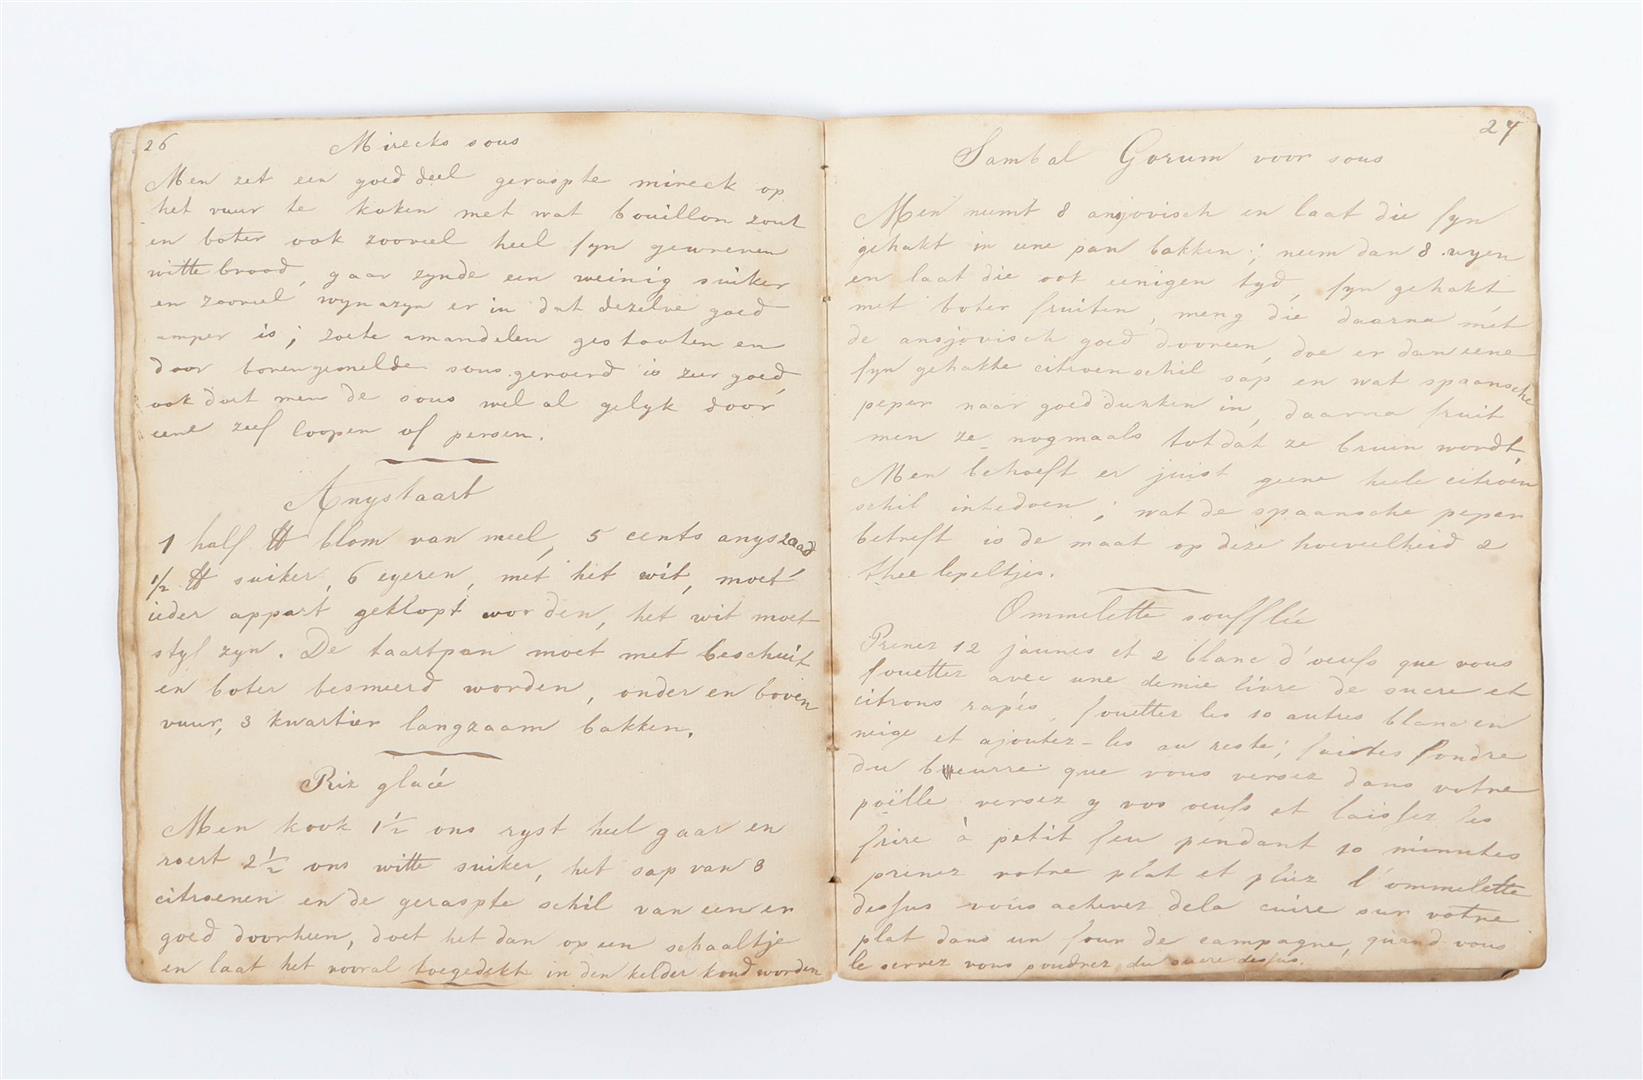 26
Mirecks sous
Men zet een goed deel geraspte mireck op
het vuur te koken met wat bouillon zout
en boter ook zooveel heel fyn gewreven
witte brood, gaar zynde een weinig suiker
en zooveel wynazyn er in dat dezelve goed
amper is; zoete amandelen gestooten en
door bovengemelde sous geroerd is zeer goed,
ook doet men de sous wel al gelyk door
eene zeef loopen of persen.
Anystaart
1 half ℔ blom van meel, 5 cents anyszaad
1/2 ℔ suiker, 6 eyeren, met het wit, moet
ieder appart geklopt worden, het wit moet
styf zyn. De taartpan moet met beschuit
en boter besmeerd worden, onder en boven
vuur, 3 kwartier langzaam bakken.
Riz glacé
Men kook 1½ ons ryst heel gaar en
roert 2½ ons witte suiker, het sap van 3
citroenen en de geraspte schil van een er
goed doorheen, doet het dan op een schaaltje
en laat het vooral toegedekt in den kelder koud worden
27
Sambal Gorum voor sous
Men neemt 8 ansjovisch en laat die fyn
gehakt in eene pan bakken; neem dan 8 uyen
en laat die ook eenigen tyd, fyn gehakt
met boter fruiten, meng die daarna met
de ansjovisch goed dooreen, doe er dan eene
fyn gehakte citroenschil sap en wat spaansche
peper naar goeddunken in, daarna fruit
men ze nogmaals totdat ze bruin wordt,
Men behoeft er juist geene heele citroen
schil intedoen; wat de spaansche peper
betreft is de maat op deze hoeveelheid 2
thee lepeltjes.
Ommelette soufflée
Prenez 12 jaunes et 2 blanc d'oeufs que vous
fouettez avec une demie livre de sucre et
citrons rapés, fouettez les 10 autres blanc en
neige et ajoutez-les au reste; faietes fondre
du beurre que vous versez dans votre
poëlle versez y vos oeufs et laissez les
frire à petit feu pendant 10 minutes
prenez votre plat et pliez l'ommelette
dessus vous achevez dela cuire sur votre
plat dans un four de campagne, quand vous
le servez vous poudrez du sucre dessus.